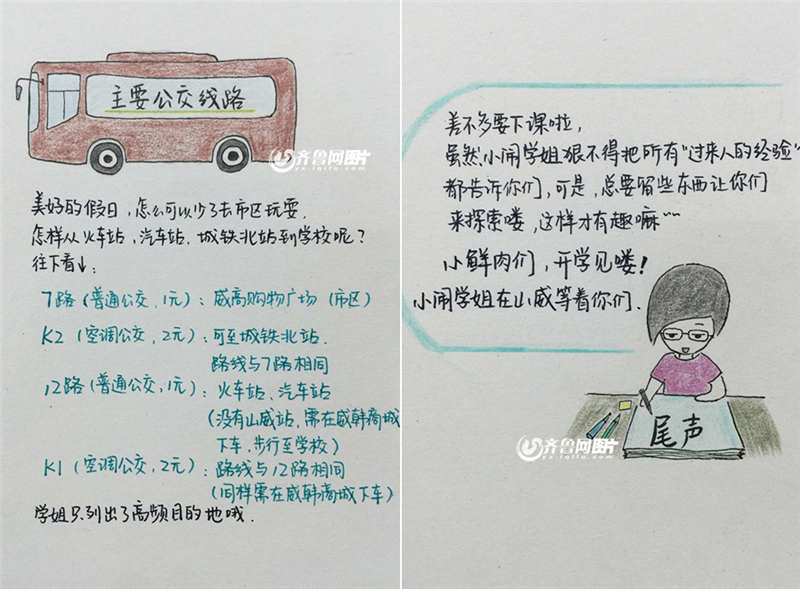 主要公交线路
齐鲁网图片
美好的假日,怎么可以少了去市区玩耍.
怎样从火车站、汽车站、城铁北站到学校呢?
往下看↓:
7路(普通公交,1元):威高购物广场(市区)
K2(空调公交,2元):可至城铁北站.
路线与7路相同
12路(普通公交,1元):火车站、汽车站
(没有山威站,需在威韩商城
下车,步行至学校)
K1(空调公交,2元):路线与12路相同
(同样需在威韩商城下车)
学姐只列出了高频目的地哦.
差不多要下课啦,
虽然小闹学姐狠不得把所有"过来人的经验"
都告诉你们,可是,总要留些东西让你们
来探索喽,这样才有趣嘛~~
小鲜肉们,开学见喽!
小闹学姐在山威等着你们.
尾声
齐鲁网图片